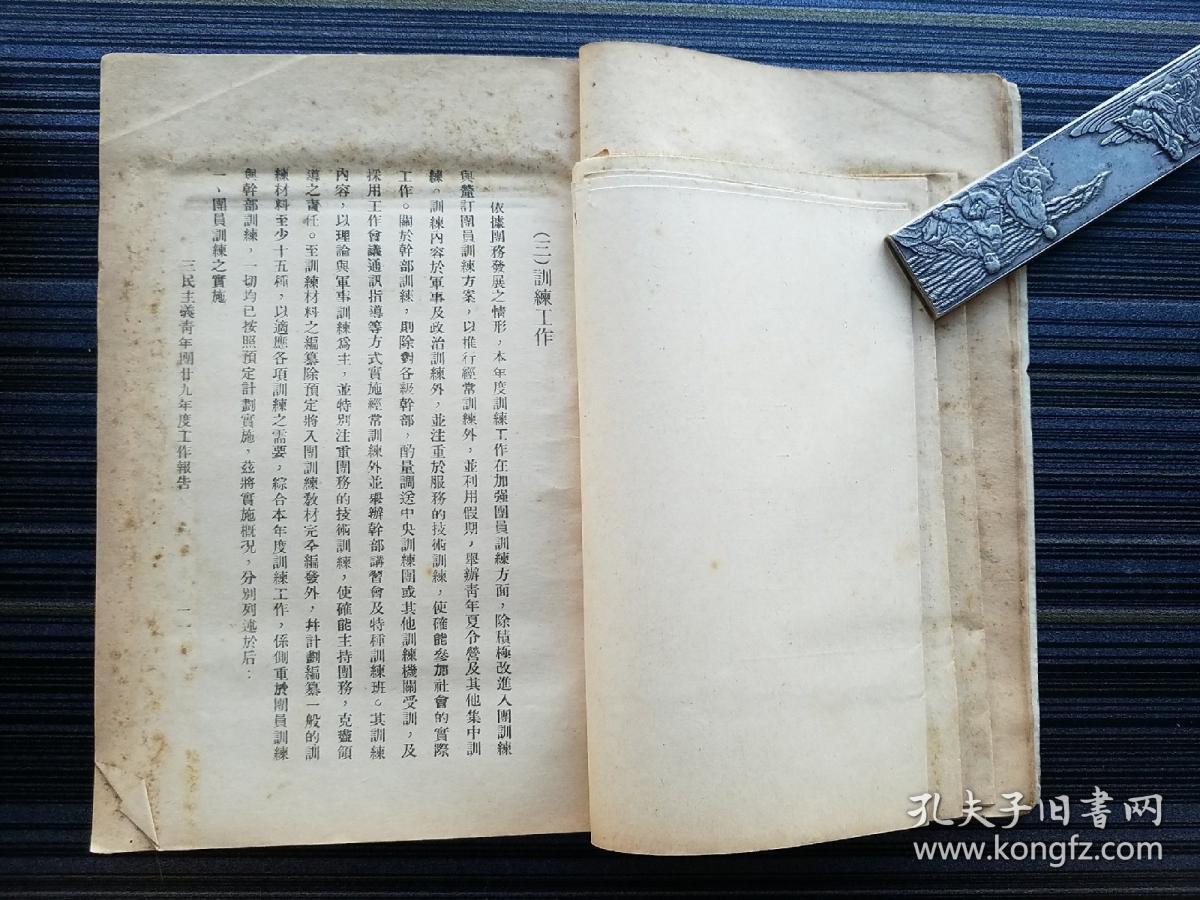 (三)訓練工作
依據團務發展之情形，本年度訓練工作在加强團員訓練方面，除積極改進入團訓練
與釐訂團員訓練方案，以推行經常訓練外，並利用假期，舉辦青年夏令營及其他集中訓
練。訓練內容於軍事及政治訓練外，並注重於服務的技術訓練，使確能參加社會的實際
工作。關於幹部訓練，則除對各級幹部，酌量調送中央訓練團或其他訓練機關受訓，及
採用工作會議通訊指導等方式實施經常訓練外並舉辦幹部講習會及特種訓練班。其訓練
內容，以理論與軍事訓練爲主，並特別注重團務的技術訓練，使確能主持團務，克盡領
導之責任。至訓練材料之編纂除預定將入團訓練教材完全編發外，幷計劃編纂一般的訓
練材料至少十五種，以適應各項訓練之需要，綜合本年度訓練工作，係側重於團員訓練
與幹部訓練，一切均已按照預定計劃實施，茲將實施概況，分別列述於后：
一、團員訓練之實施
三民主義青年團廿九年度工作報告
一一
孔夫子旧書网
www.kongfz.com